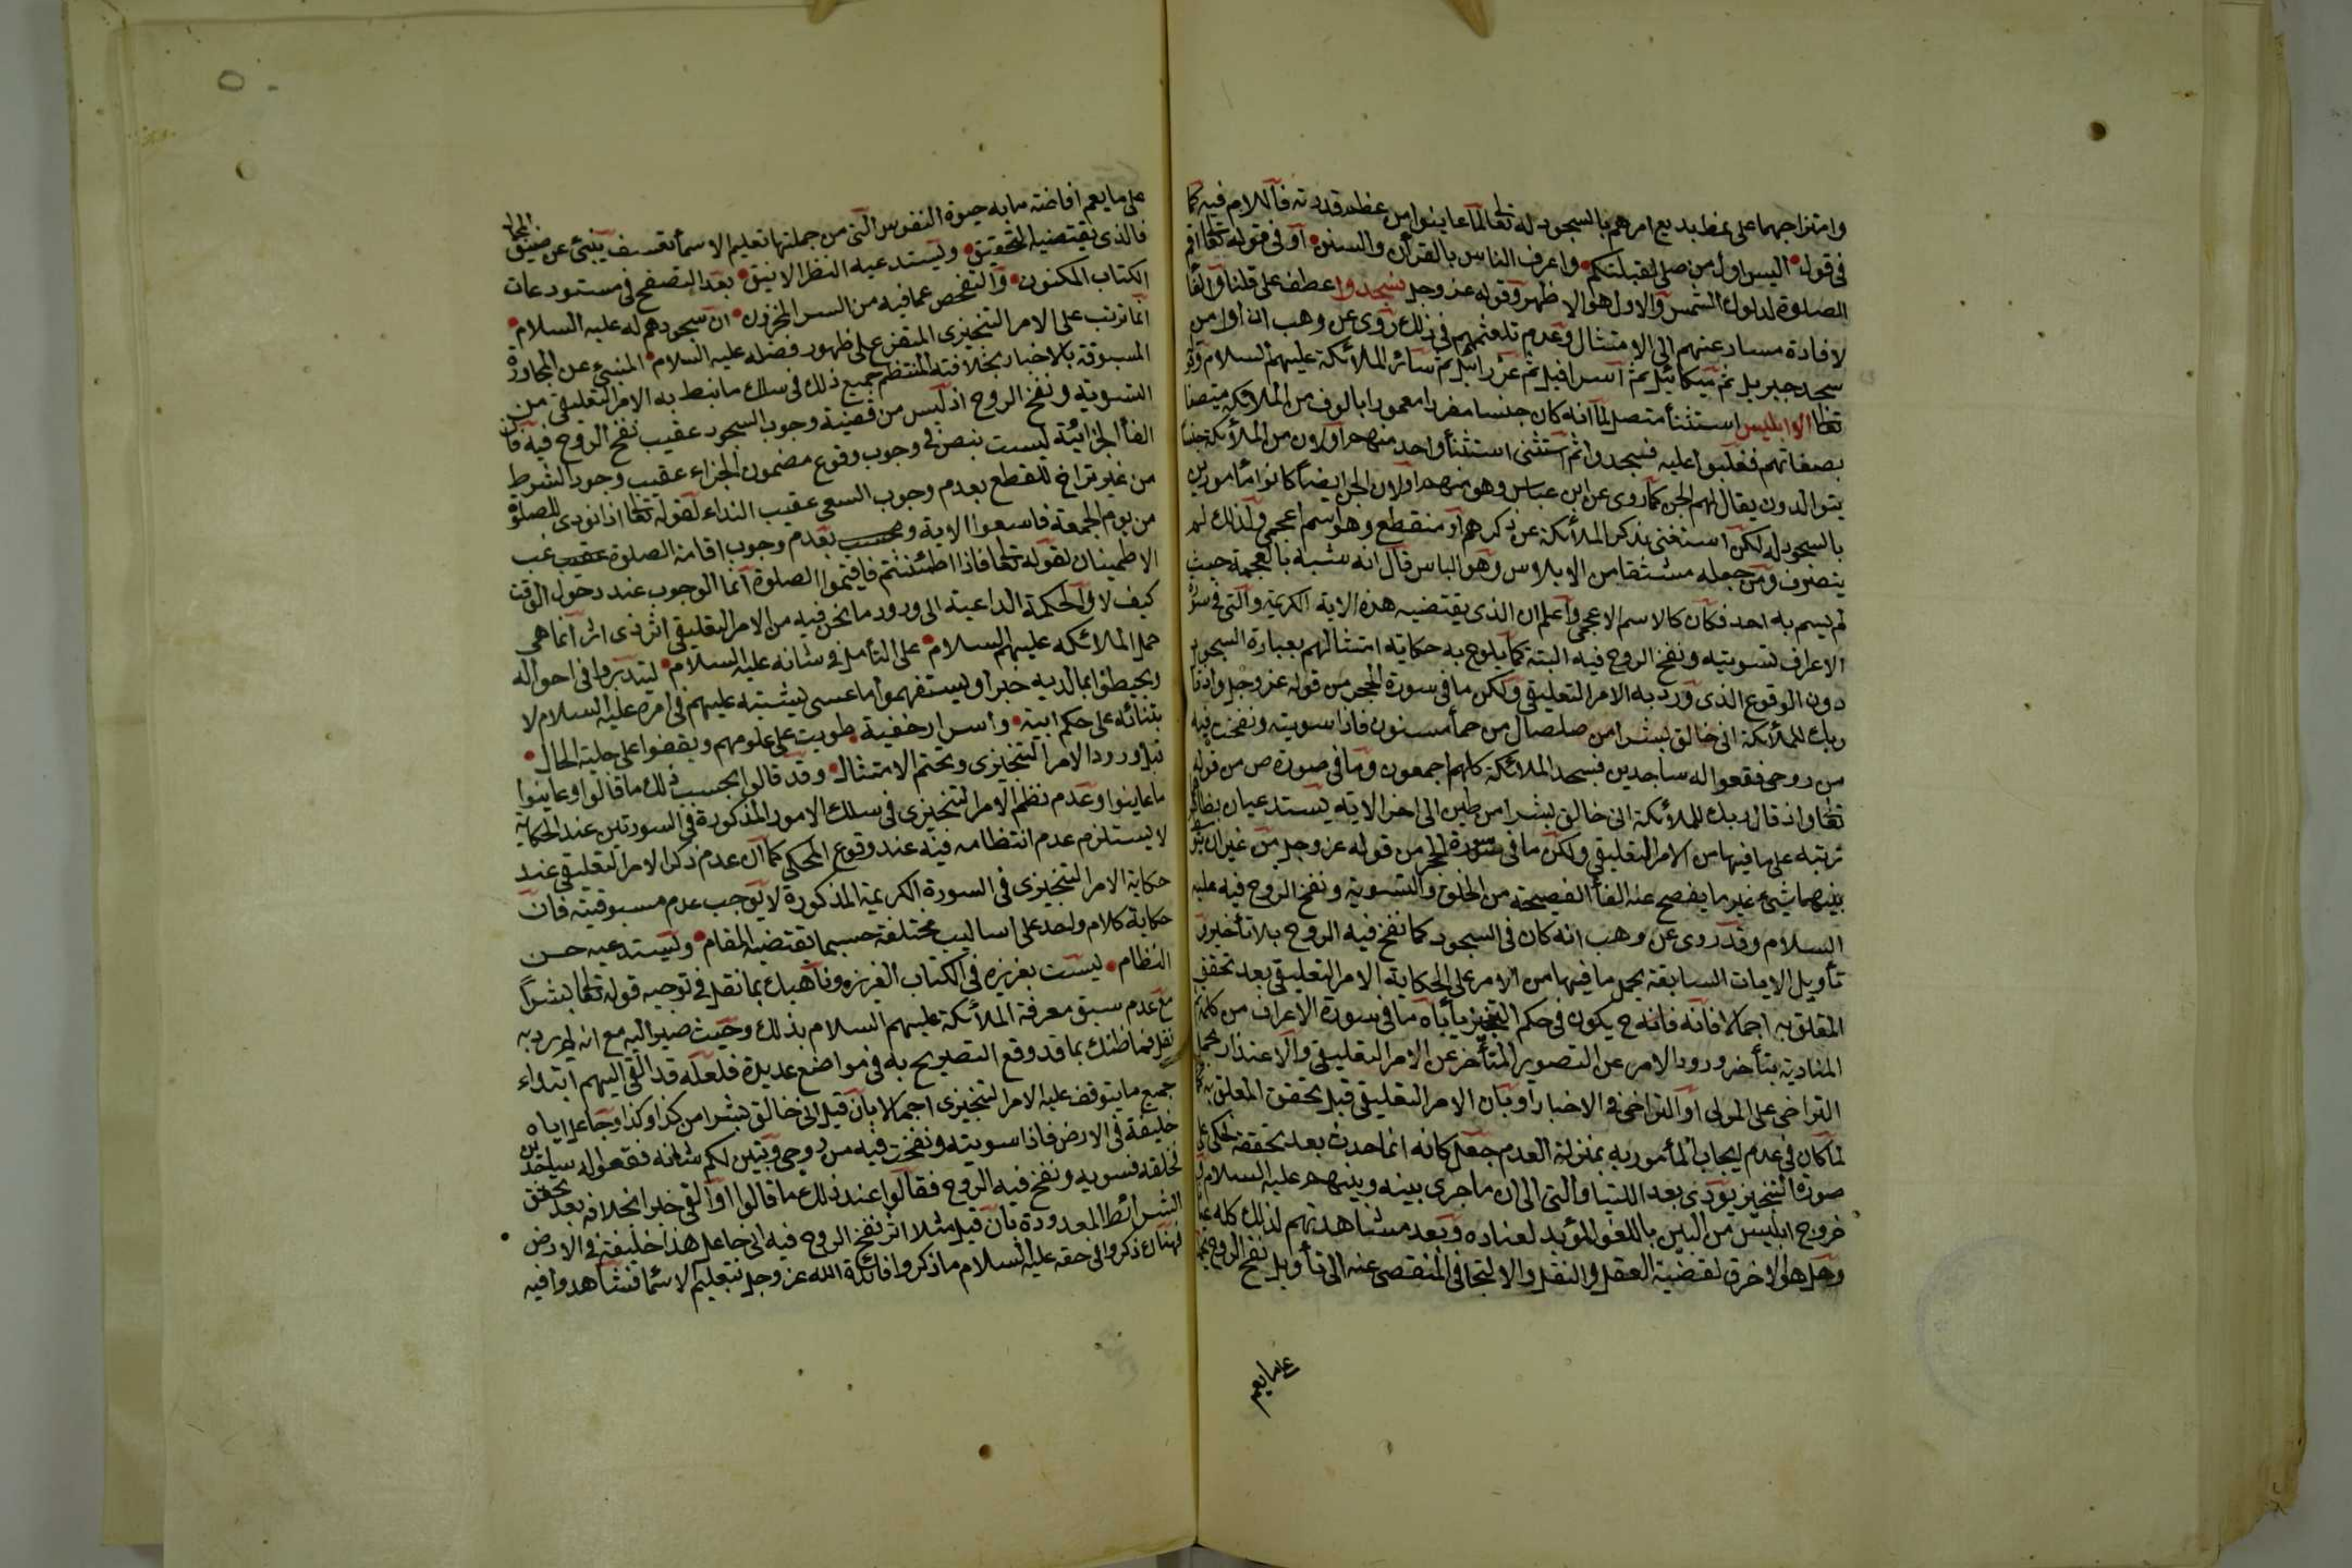 وامتزاجهما على نمط بديع امرهم بالسجود له تعالى لما عاينوا من عظم قدرته فاللام فيه كما
في قول اليس اول من صلى لقبلتكم واعرف الناس بالقرأن والسنن او في قوله تعالى اقم
الصلوة لدلوك الشمس والاول هو الاظهر وقوله عز وجل فسجدوا عطف على قلنا والفا
لافادة مسارعتهم الى الامتثال وعدم تلعثمهم في ذلك روى عن وهب ان اول من
سجد جبريل ثم ميكائيل ثم اسرافيل ثم عزرائيل ثم سائر الملائكة عليهم السلام وقوله
تعالى الا ابليس استثنأ متصل لما انه كان جنيا مفردا مغمورا بالوف من الملائكة متصفا
بصفاتهم فغلبوا عليه فسجدوا ثم استثنى استثنأ واحد منهم او لان من الملائكة جنسا
يتوالدون يقال لهم الجن كما روى عن ابن عباس وهو منهم او لان الجن ايضا كانوا مأمورين
بالسجود له لكن استغنى بذكر الملائكة عن ذكرهم او منقطع وهو اسم اعجمي ولذلك لم
ينصرف ومن جعله مشتقا من الابلاس وهو الياس قال انه شبه بالعجمة حيث
لم يسم به احد فكان كالاسم الاعجمي واعلم ان الذي يقتضيه هذه الاية الكريمة والتي في سورة
الاعراف تسويته ونفخ الروح فيه البتة كما يلوح به حكاية امتثالهم بعبارة السجود
دون الوقوع الذي ورد به الامر التعليقي ولكن ما في سورة الحجر من قوله عز وجل واذ قال
ربك للملائكة اني خالق بشرا من صلصال من حمأ مسنون فاذا سويته ونفخت فيه
من روحي فقعوا له ساجدين فسجد الملائكة كلهم اجمعون وما في صورة ص من قوله
تعالى واذ قال ربك للملائكة اني خالق بشرا من طين الى اخر الاية يستدعيان بظاهرهما
ترتبه على ما فيهما من الامر التعليقي ولكن ما في سورة الحجر من قوله عز وجل من غير ان يتوسط
بينهما شيء غير ما يفصح عنه الفأ الفصيحة من الخلق والتسوية ونفخ الروح فيه عليه
السلام وقد روى عن وهب انه كان في السجود كما نفخ فيه الروح بلا تأخير
تأويل الايات السابقة بحمل ما فيها من الامر على الحكاية الامر التعليقي بعد تحقق
المعلق به اجمالا فانه فانه ح يكون في حكم التنجيز يأباه ما في سورة الاعراف من كلمة ثم
المنادية بتأخر ورود الامر عن التصوير المتأخر عن الامر التعليقي والاعتذار بحمل
التراخي على الرتبي او التراخي في الاخبار او بان الامر التعليقي قبل تحقق المعلق به
لما كان في عدم ايجاب المأمور به بمنزلة العدم جعل كانه انما حدث بعد تحققه فحكى على
صورة التنجيز يؤدي بعد اللتيا والتي الى ان ما جرى بينه وبينهم عليه السلام
خروج ابليس من البين باللغو المؤيد لعناده وبعد مشاهدتهم لذلك كله
وهل هو الا خرق لقضية العقل والنقل والالتجا في التفصي عنه الى تأويل نفخ الروح
على ما يعم
على ما يعم افاضة ما به حيوة النفوس التي من جملتها تعليم الاسمأ تعسف ينبئ عن ضيق المجال
فالذي يقتضيه التحقيق ويستدعيه النظر الانيق بعد التصفح في مستودعات
الكتاب المكنون والتفحص عما فيه من السر المخزون ان سجودهم له عليه السلام
انما ترتب على الامر التنجيزي المتفرع على ظهور فضله عليه السلام المنبئ عن المحاورة
المسبوقة بالاخبار بخلافته المنتظم جميع ذلك في سلك ما نيط به الامر التعليقي من
التسوية ونفخ الروح اذ ليس من قضية وجوب السجود عقيب نفخ الروح فيه فان
الفأ الجزائية ليست بنص في وجوب وقوع مضمون الجزاء عقيب وجود الشرط
من غير تراخ للقطع بعدم وجوب السعي عقيب النداء لقوله تعالى اذا نودي للصلوة
من يوم الجمعة فاسعوا الاية وبعدم وجوب اقامة الصلوة غب
الاطمينان لقوله تعالى فاذا اطمئننتم فاقيموا الصلوة انما الوجوب عند دخول الوقت
كيف لا والحكمة الداعية الى ورود ما نحن فيه من الامر التعليقي اثر ذي اثير انما هي
حمل الملائكة عليهم السلام على التأمل في شانه عليه السلام ليتدبروا في احواله
ويحيطوا بما لديه خبرا ويستفهموا ما عسى يشتبه عليهم في امره عليه السلام لا
بتنائه على حكم ابية واسرار خفية طويت على علومهم ويقفوا على جلية الحال
قبل ورود الامر التنجيزي وتحتم الامتثال وقد قالوا بحسب ذلك ما قالوا وعاينوا
ما عاينوا وعدم نظم الامر التنجيزي في سلك الامور المذكورة في السورتين عند الحكاية
لا يستلزم عدم انتظامه فيه عند وقوع المحكي كما ان عدم ذكر الامر التعليقي عند
حكاية الامر التنجيزي في السورة الكريمة المذكورة لا يوجب عدم مسبوقيته فان
حكاية كلام واحد على اساليب مختلفة حسبما تقتضيه المقام ويستدعيه حسن
النظام ليست بعزيزة في الكتاب العزيزه وناهيك بما نقل في توجيه قوله تعالى بشرا
مع عدم سبق معرفة الملائكة عليهم السلام بذلك وحيث صير اليه مع انه لم يرد به
نقل فما ظنك بما قد وقع التصريح به في مواضع عديدة فلعله قد القى اليهم ابتداء
جميع ما يتوقف عليه الامر التنجيزي اجمالا بأن قيل اني خالق بشرا من كذا وكذا وجاعل اياه
خليفة في الارض فاذا سويته ونفخت فيه من روحي وتبين لكم شانه فقعوا له ساجدين
فخلقه فسويه ونفخ فيه الروح فقالوا عند ذلك ما قالوا او القى خبر الخلافة بعد تحقق
الشرائط المعدودة بأن قيل مثلا اثر نفخ الروح فيه اني جاعل هذا خليفة في الارض
فهناك ذكروا في حقه عليه السلام ما ذكروا فايده الله عز وجل بتعليم الاسما فشاهدوا فيه